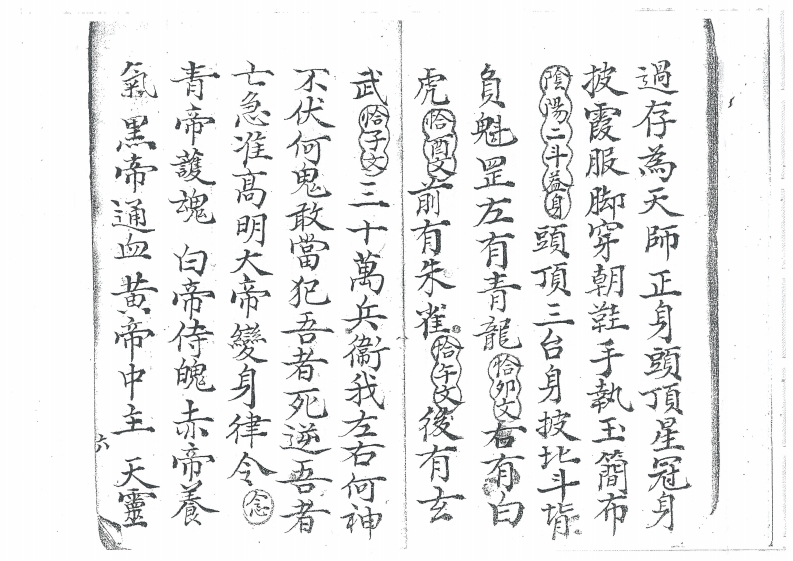 過存為天師正身頭頂星冠身
披霞服脚穿朝鞋手執玉簡布
陰陽二斗益身頭頂三台身披北斗背
負魁罡左有青龍恰卯文右有白
虎恰酉文前有朱雀恰午文後有玄
武恰子文三十萬兵衞我左右何神
不伏何鬼敢當犯吾者死逆吾者
亡急准高明大帝變身律令念
青帝護魂 白帝侍魄 赤帝養
氣 黑帝通血 黃帝中主 天靈
六